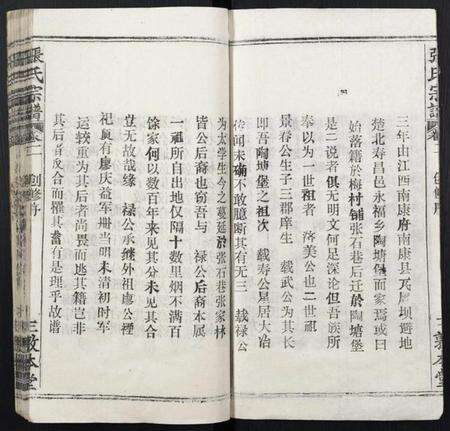 張氏宗譜
卷二
創修序
三敦本堂
三年由江西南康府南康縣瓦屑壩遷地
楚北壽昌邑永福鄉陶塘堡而家焉或曰
始落籍於梅村鋪張石巷后迁於陶塘堡
是二說者俱无明文何足深论但吾族所
奉以为一世祖者 落美公也二世祖
景春公生子三郡庠生 載武公为其长
即吾陶塘堡之祖次 载寿公星居大冶
传闻未确不敢臆断其有无三 载禄公
为太学生今之蔓延於张石巷张家林
皆公后裔也窃吾与 禄公后裔本属
一祖所自出地仅隔十数里烟不满百
馀家何以数百年来见其分未见其合
豈无故哉缘 禄公承继外祖廖公禋
祀夷有廖庆益軍册当明末清初时军
运较重为其后者尚畏而逃其籍岂非
其后者反合而懼其畜有是理乎故谱
張氏宗譜
卷二
創修序
三敦本堂